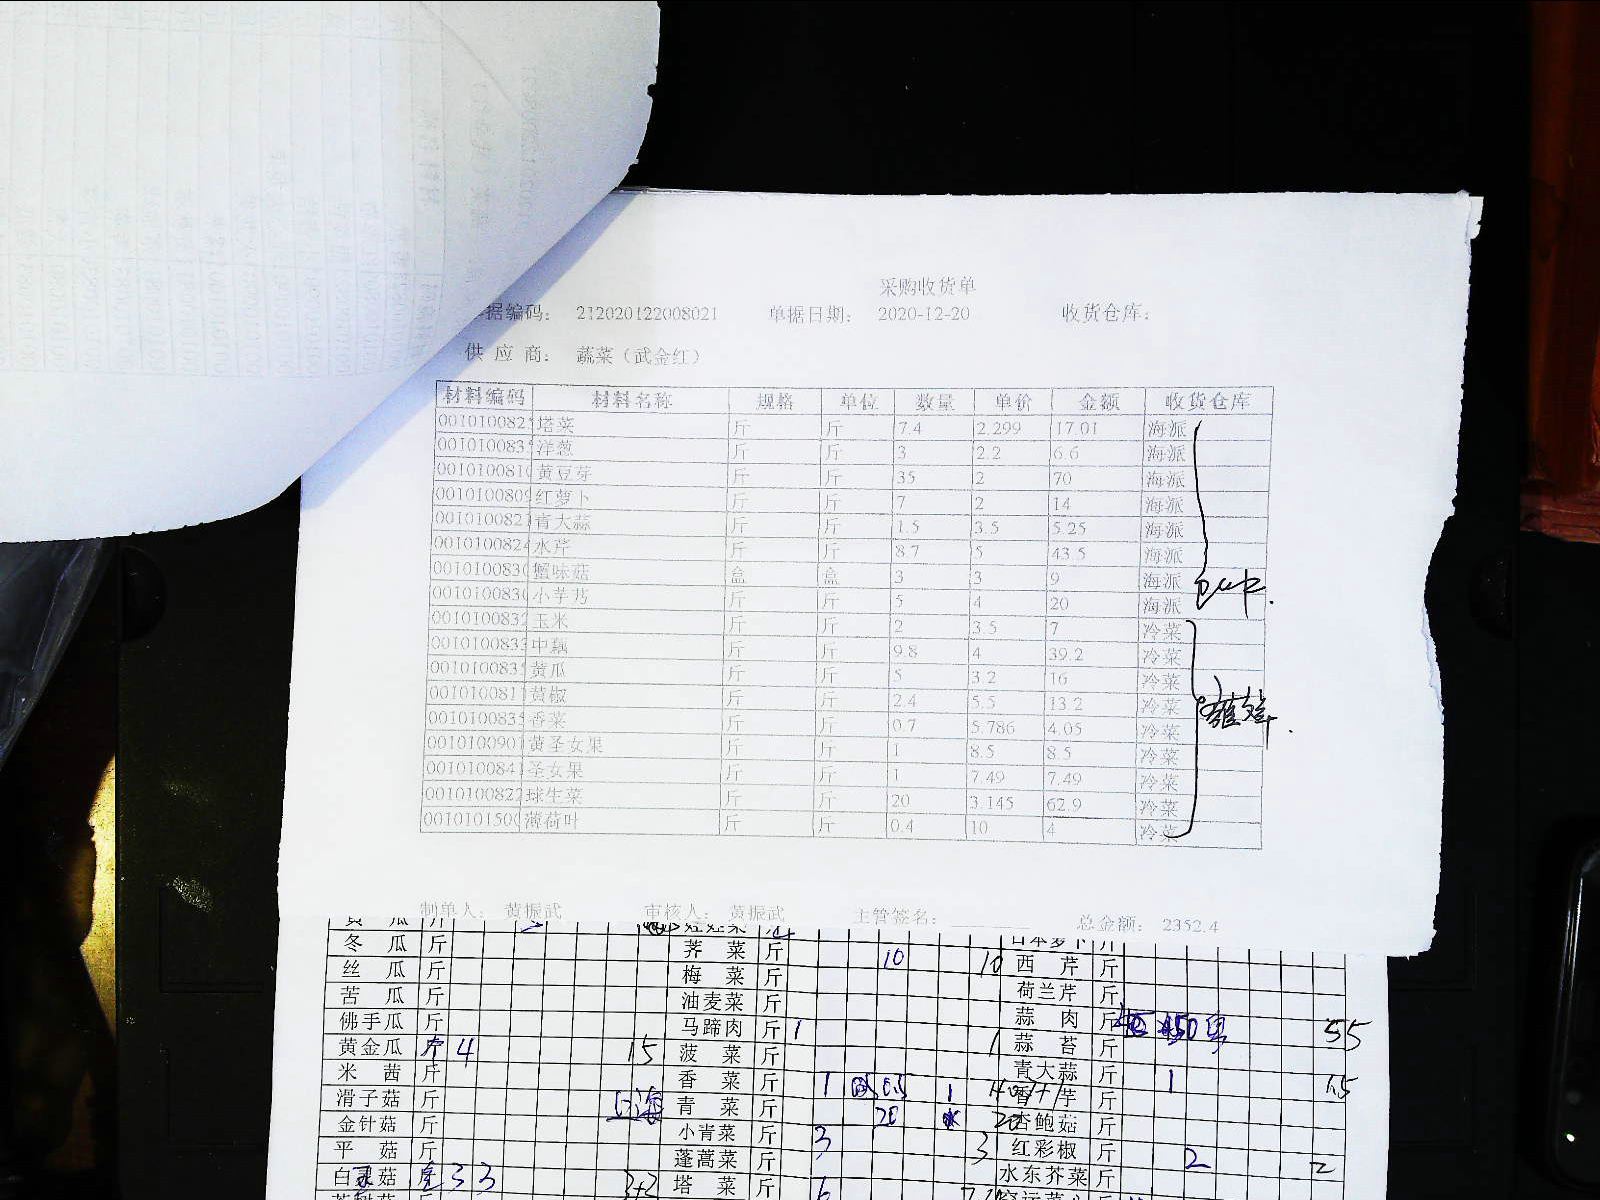 采购收货单
据编码： 212020122008021 单据日期： 2020-12-20 收货仓库：
供 应 商： 蔬菜（武金红）
材料编码 材料名称 规格 单位 数量 单价 金额 收货仓库
001010082 塔菜 斤 斤 7.4 2.299 17.01 海派
001010083 洋葱 斤 斤 3 2.2 6.6 海派
001010081 黄豆芽 斤 斤 35 2 70 海派
001010080 红萝卜 斤 斤 7 2 14 海派
001010082 青大蒜 斤 斤 1.5 3.5 5.25 海派
001010082 水芹 斤 斤 8.7 5 43.5 海派
001010083 蟹味菇 盒 盒 3 3 9 海派
001010083 小芋艿 斤 斤 5 4 20 海派
001010083 玉米 斤 斤 2 3.5 7 冷菜
001010083 中藕 斤 斤 9.8 4 39.2 冷菜
001010083 黄瓜 斤 斤 5 3.2 16 冷菜
001010081 黄椒 斤 斤 2.4 5.5 13.2 冷菜
001010083 香菜 斤 斤 0.7 5.786 4.05 冷菜
001010090 黄圣女果 斤 斤 1 8.5 8.5 冷菜
001010084 圣女果 斤 斤 1 7.49 7.49 冷菜
001010082 球生菜 斤 斤 20 3.145 62.9 冷菜
001010150 薄荷叶 斤 斤 0.4 10 4 冷菜
制单人： 黄振武 审核人： 黄振武 主管签名： 总金额： 2352.4
黄 瓜 斤
冬 瓜 斤 荠 菜 斤 10 10 西 芹 斤
丝 瓜 斤 梅 菜 斤 荷兰芹 斤
苦 瓜 斤 油麦菜 斤 蒜 肉 斤 55
佛手瓜 斤 马蹄肉 斤 1 1 蒜 苔 斤
黄金瓜 斤 4 15 菠 菜 斤 青大蒜 斤 1 1.5
米 茜 斤 香 菜 斤 1 1 香 芋 斤
滑子菇 斤 上海 青 菜 斤 20 20 杏鲍菇 斤
金针菇 斤 小青菜 斤 3 3 红彩椒 斤 2 2
平 菇 斤 蓬蒿菜 斤 水东芥菜 斤
白灵菇 3 3 3+3 塔 菜 斤 6